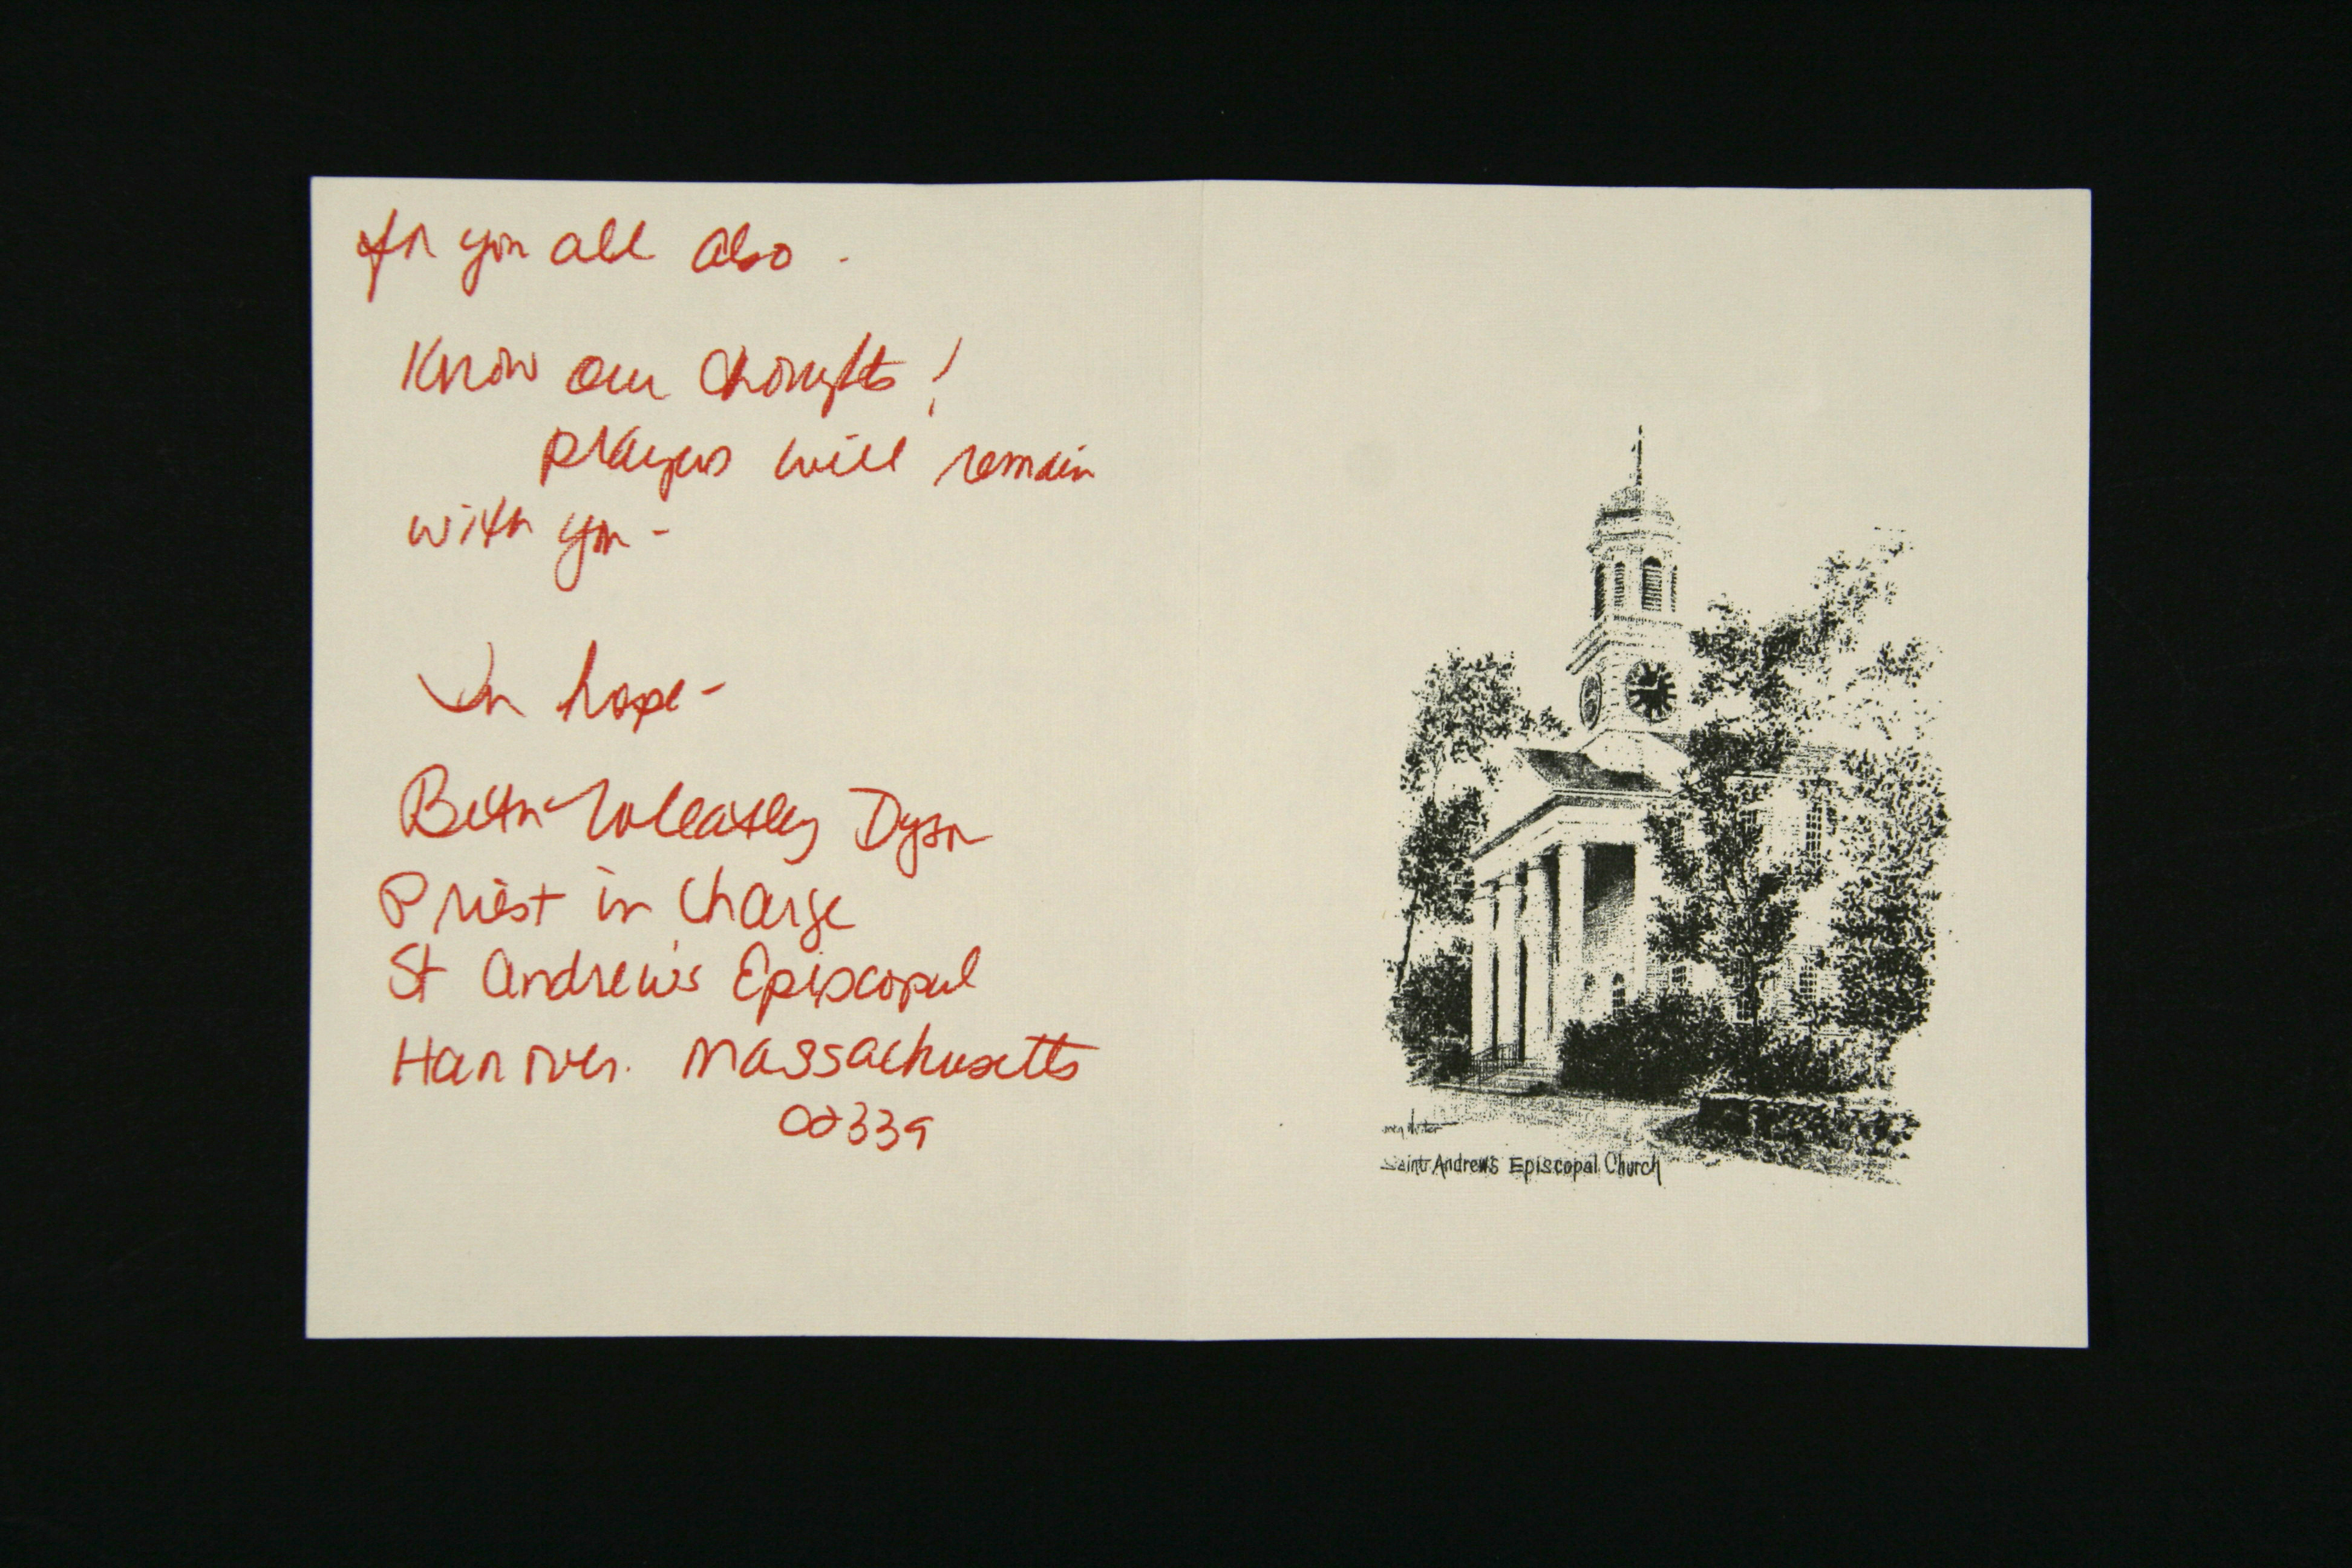 for you all also.
Know our thoughts !
prayers will remain
with you -
In hope -
Beth Wheatley Dyson
Priest in Charge
St Andrew's Episcopal
Hanover. Massachusetts
02339
Saint Andrew's Episcopal Church